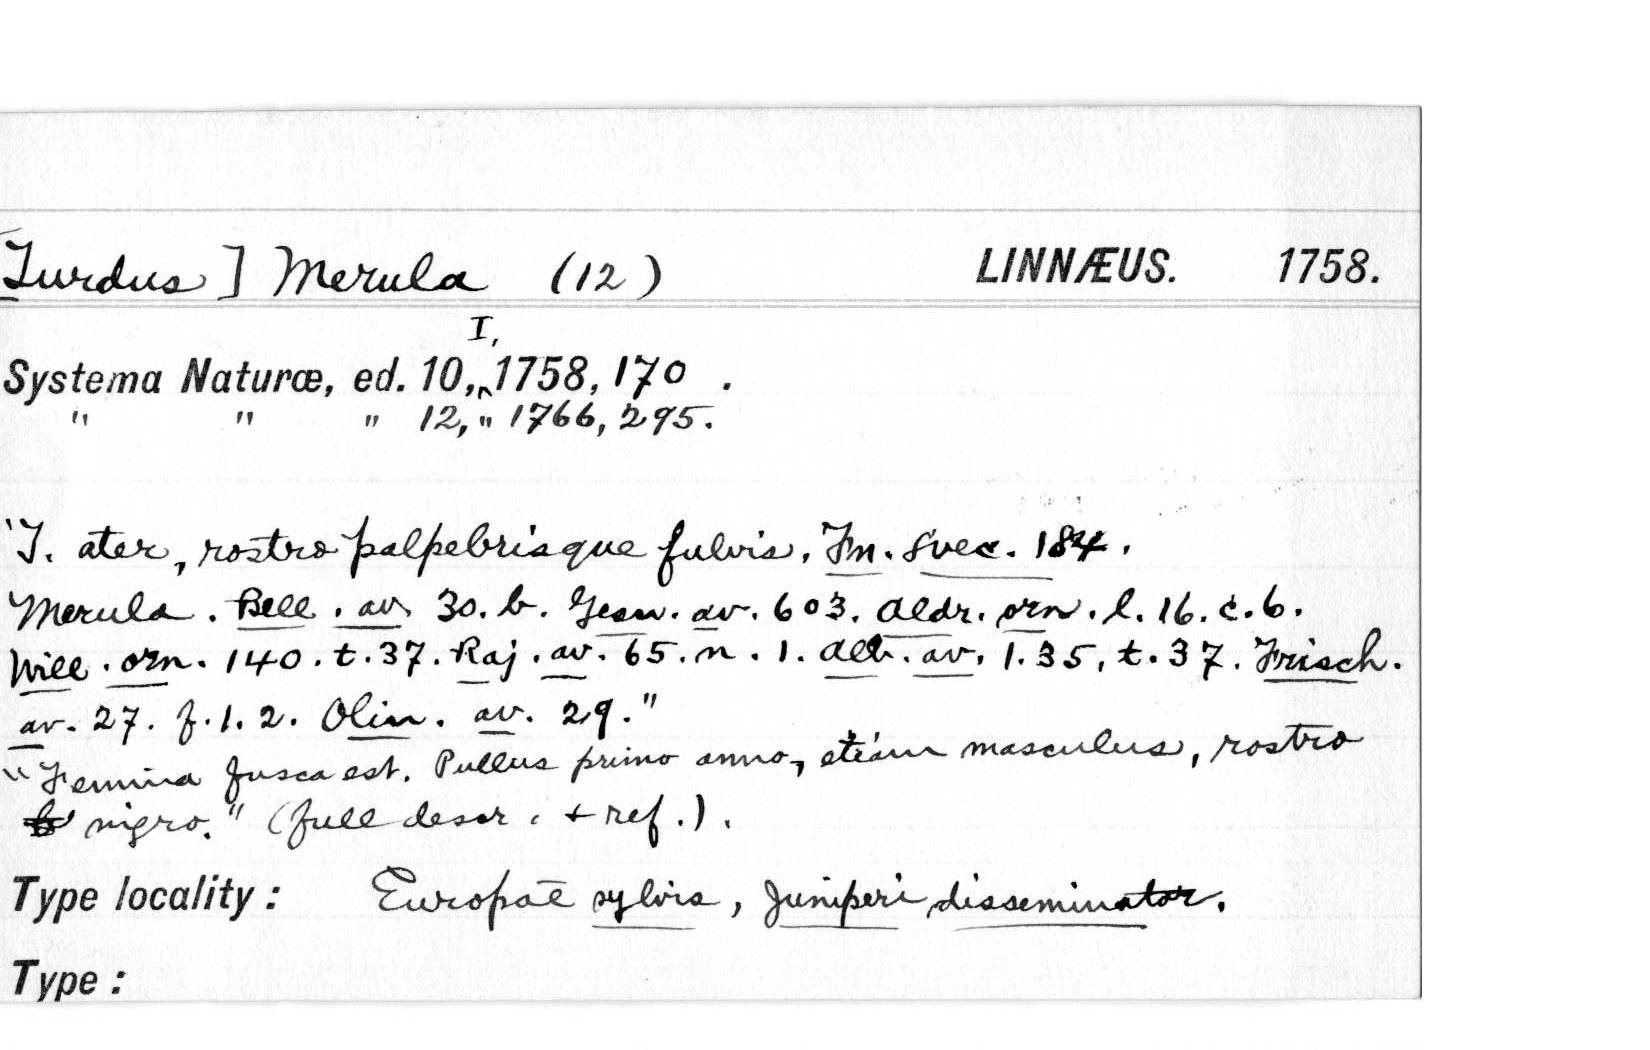 [Turdus] Merula (12) LINNÆUS. 1758.
I,
Systema Naturæ, ed. 10, 1758, 170 .
" " " 12, " 1766, 295.
"T. ater, rostro palpebrisque fulvis, Fn. Svec. 184.
Merula. Bell. av. 30. b. Gesn. av. 603. Aldr. orn. l. 16. c. 6.
Will. orn. 140. t. 37. Raj. av. 65. n. 1. Alb. av. 1. 35, t. 37. Frisch.
av. 27. f. 1. 2. Olin. av. 29."
"Femina fusca est. Pullus primo anno, etiam masculus, rostro
nigro." (full descr. + ref.).
Type locality: Europae sylvis, Juniperi disseminator.
Type: